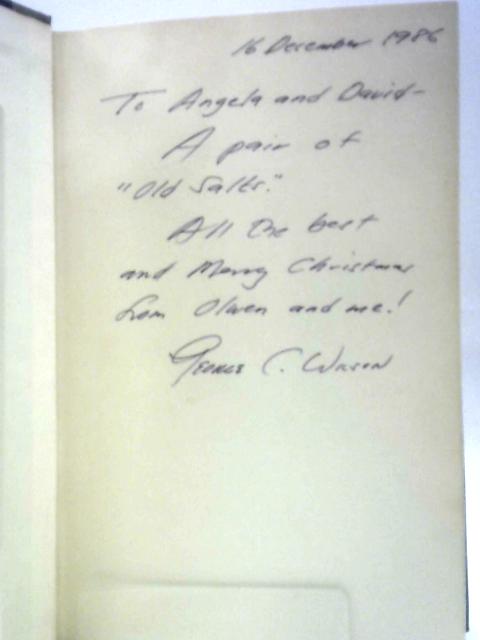 16 December 1986
To Angela and David-
A pair of
"Old Salts."
All the best
and Merry Christmas
from Olwen and me!
George C. Wilson